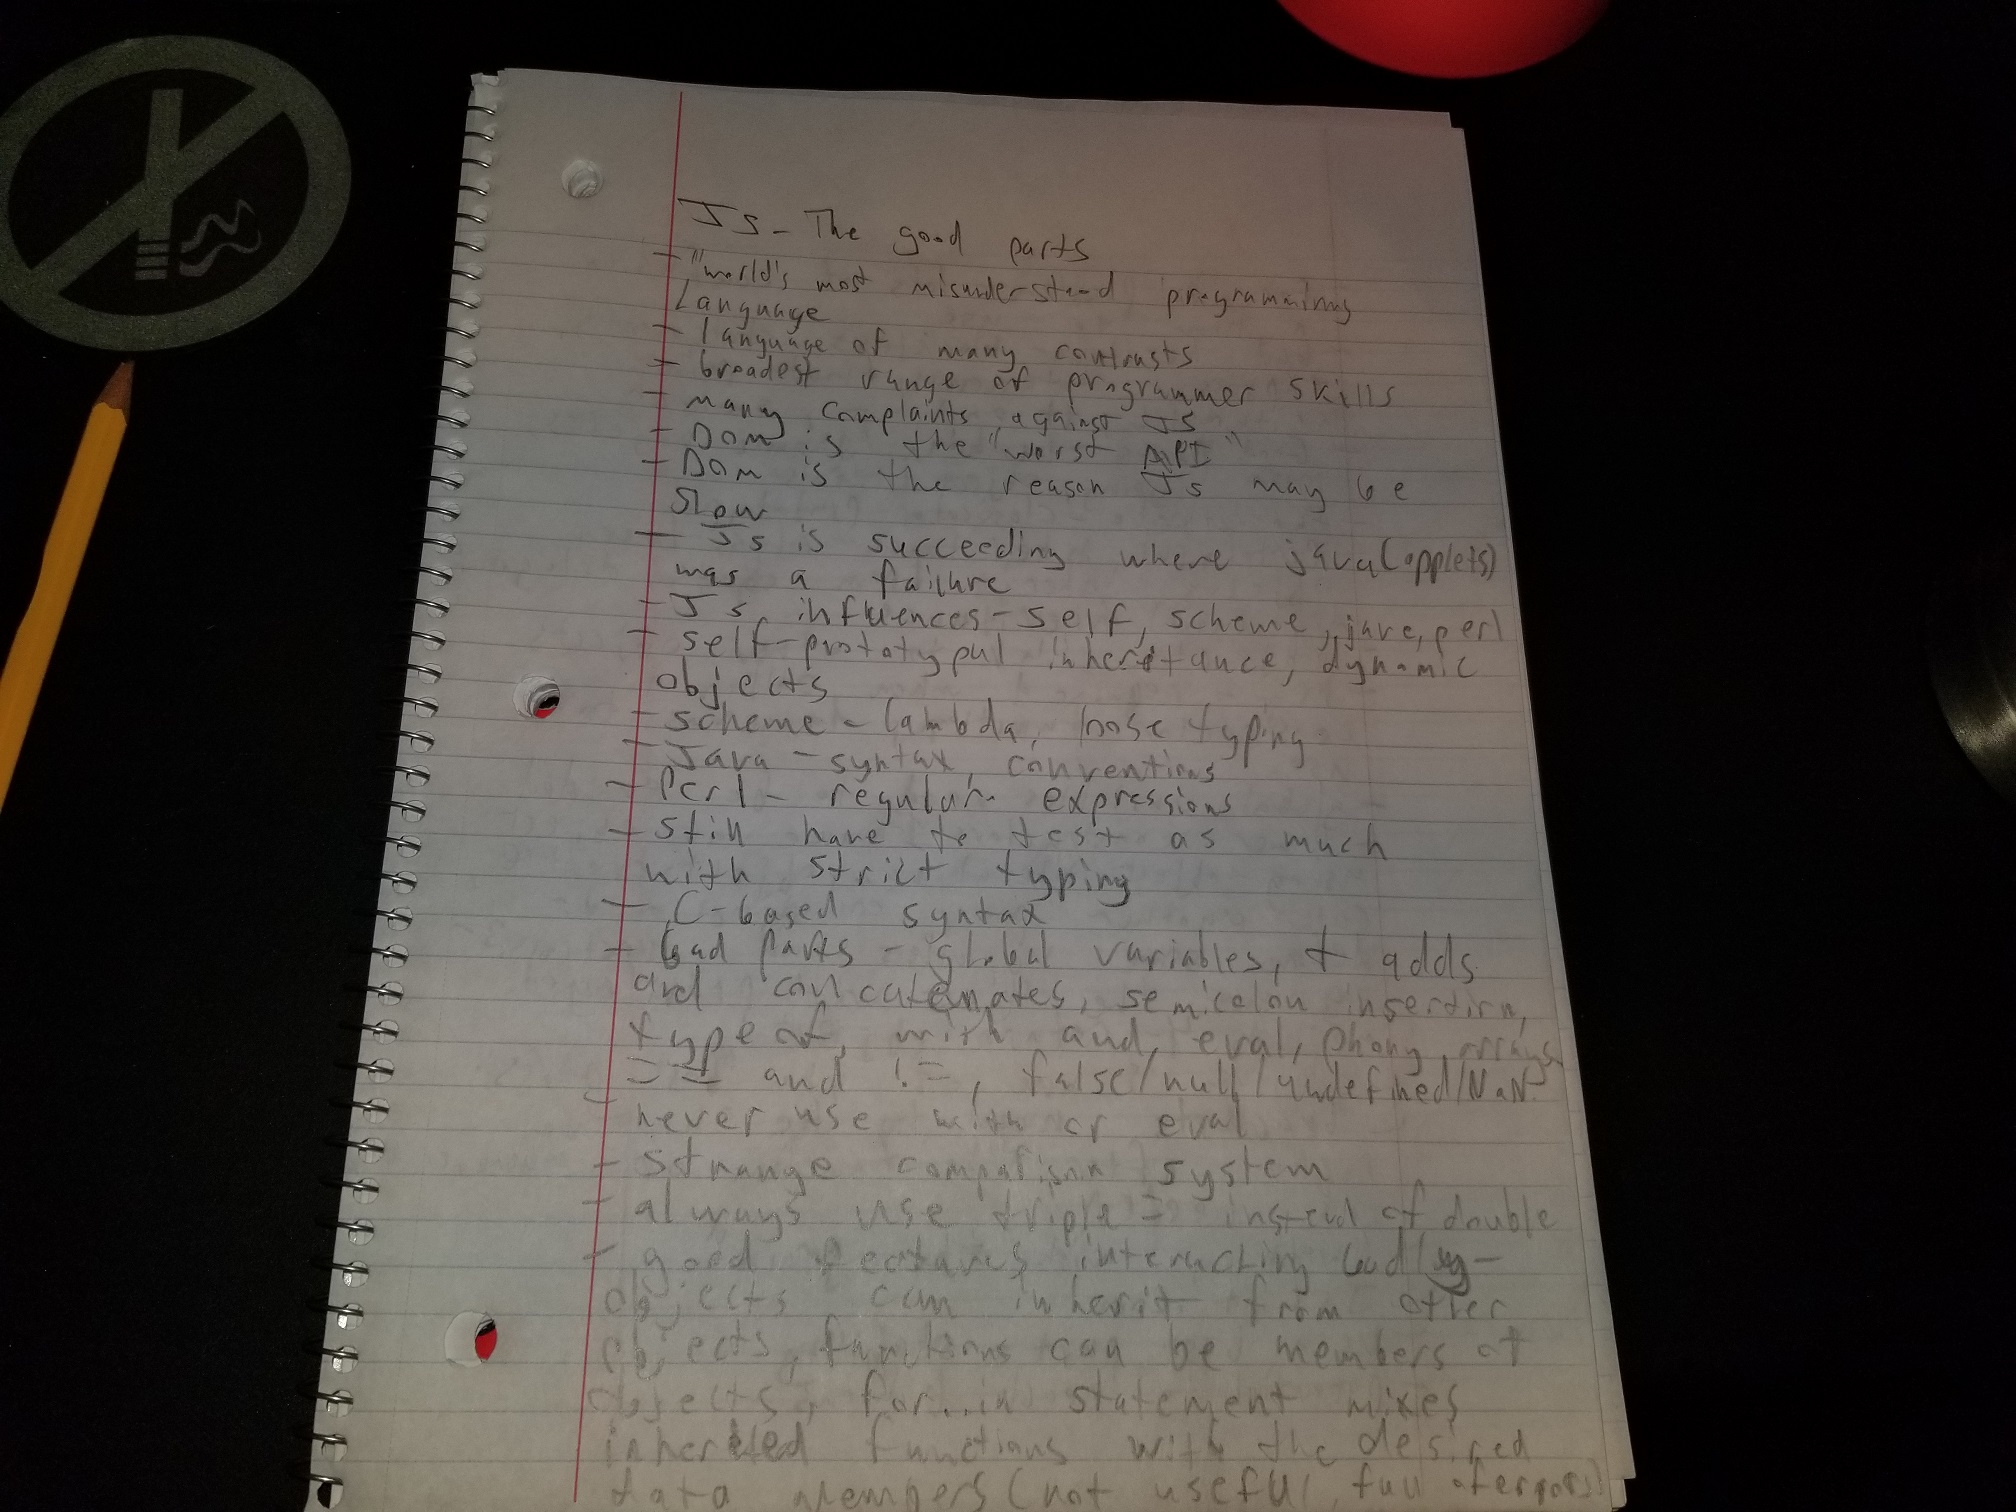 JS - The good parts
- "world's most misunderstood programming
Language
- language of many contrasts
- broadest range of programmer skills
- many complaints against JS
- DOM is the "worst API"
- DOM is the reason JS may be
slow
- JS is succeeding where java(applets)
was a failure
- JS influences - self, scheme, java, perl
- self - prototypal inheritance, dynamic
objects
- scheme - lambda, loose typing
- Java - syntax, conventions
- Perl - regular expressions
- still have to test as much
with strict typing
- C-based syntax
- bad parts - global variables, + adds
and concatenates, semicolon insertion,
type of, with and, eval, phony arrays
== and !=, false/null/undefined/NaN
- never use with or eval
- strange comparison system
- always use triple = instead of double
- good features interacting bad/
objects can inherit from other
objects, functions can be members of
objects, for..in statement mixes
inherited functions with the desired
data members (not useful, full of errors)